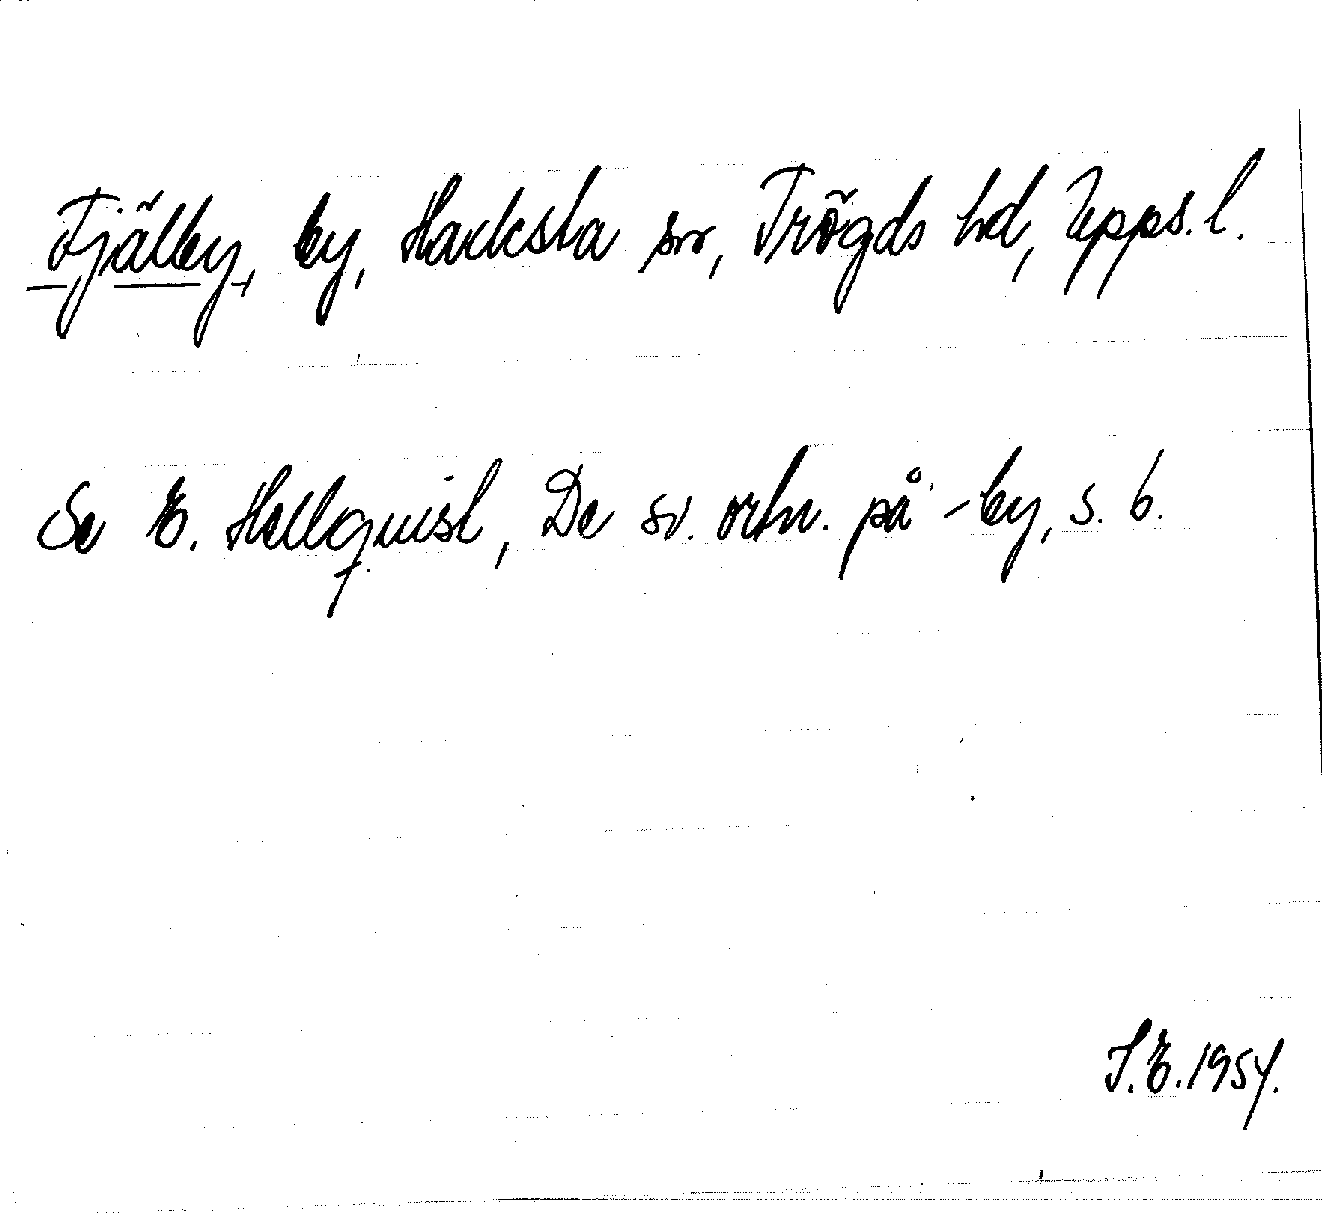 Fjälby, by, Hacksta sn, Trögds hd, Upps. l.
Se E. Hellquist, De sv. ortn. på -by, s. 6.
S.E. 1954.